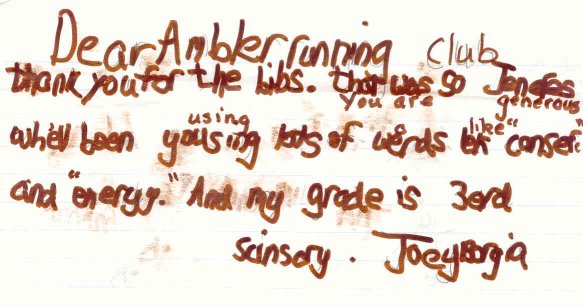 Dear Ambler running club
thank you for the bibs. that was so Jeneres
you are generous
using like
whe'll been yousing lots of werds lik "conserc"
and "energy." And my grade is 3erd
scinsory. Joey Borgia